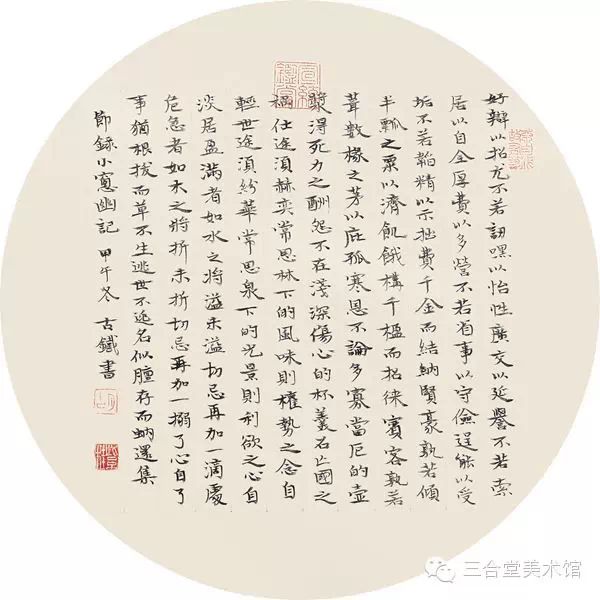 好辯以招尤不若訒嘿以怡性廣交以延譽不若索
居以自全厚費以多營不若省事以守儉逞能以受
妬不若韜精以示拙費千金而結納賢豪孰若傾
半瓢之粟以濟飢餓構千楹而招徠賓客孰若
葺數椽之茅以庇孤寒恩不論多寡當厄的壺
漿得死力之酬怨不在淺深傷心的杯羹召亡國之
禍仕途須赫奕常思林下的風味則權勢之念自
輕世途須紛華常思泉下的光景則利欲之心自
淡居盈滿者如水之將溢未溢切忌再加一滴處
危急者如木之將折未折切忌再加一搦了心自了
事猶根拔而草不生逃世不逃名似膻存而蚋還集
節錄小窻幽記 甲午冬 古鐵書
三合堂美术馆